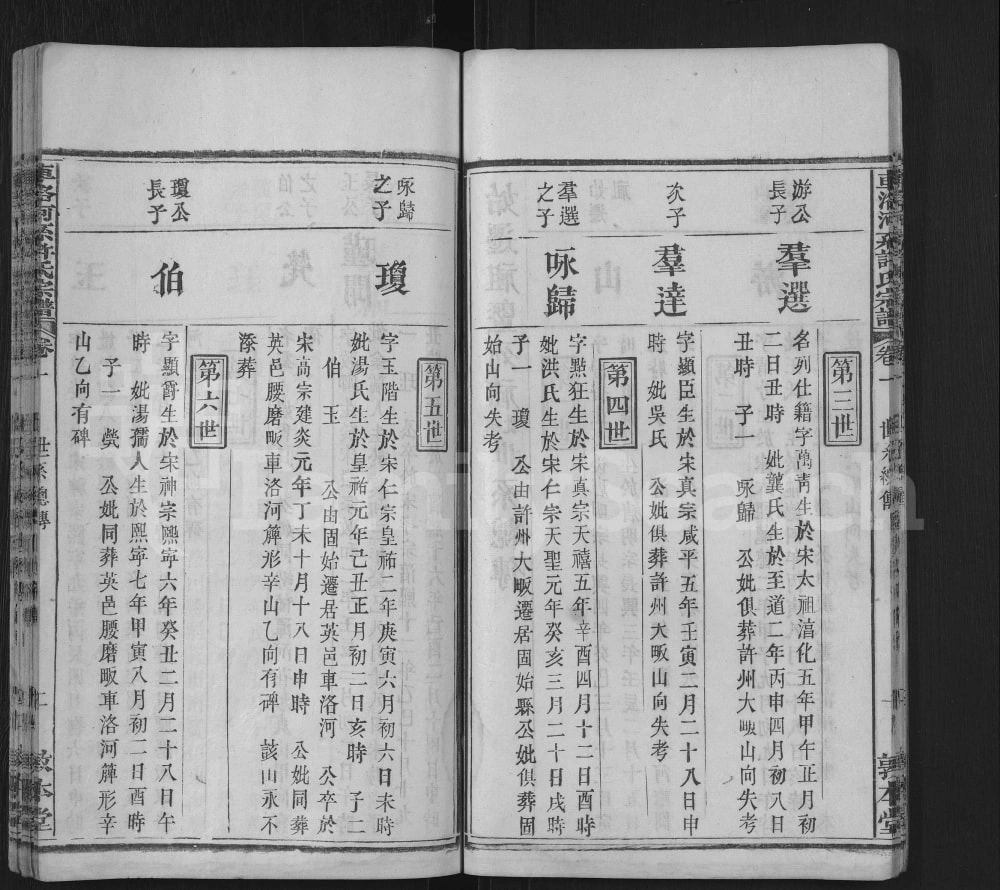 第三世
游公
長子
羣選
名列仕籍字萬青生於宋太祖湻化五年甲午正月初
二日丑時　妣龔氏生於至道二年丙申四月初八日
丑時　子一　咏歸　公妣俱葬許州大畈山向失考
次子
羣達
字顯臣生於宋真宗咸平五年壬寅二月二十八日申
時　妣吳氏　公妣俱葬許州大畈山向失考
第四世
羣選
之子
咏歸
字點狂生於宋真宗天禧五年辛酉四月十二日酉時
妣洪氏生於宋仁宗天聖元年癸亥三月二十日戌時
子一　瓊　公由許州大畈遷居固始縣公妣俱葬固
始山向失考
第五世
咏歸
之子
瓊
字玉階生於宋仁宗皇祐二年庚寅六月初六日未時
妣湯氏生於皇祐元年己丑正月初二日亥時　子二
伯　玉　公由固始遷居英邑車洛河　公卒於
宋高宗建炎元年丁未十月十八日申時　公妣同葬
英邑腰磨畈車洛河籜形辛山乙向有碑　該山永不
添葬
第六世
瓊公
長子
伯
字顯爵生於宋神宗熙寧六年癸丑二月二十八日午
時　妣湯孺人生於熙寧七年甲寅八月初二日酉時
子一　熒　公妣同葬英邑腰磨畈車洛河籜形辛
山乙向有碑
車洛河系許氏宗譜　卷一　世系總傳　二　敦本堂